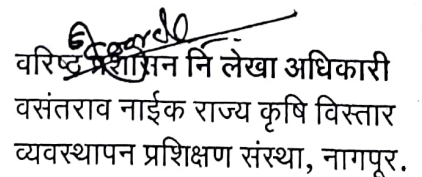 वरिष्ठ प्रशासन नि लेखा अधिकारी
वसंतराव नाईक राज्य कृषि विस्तार
व्यवस्थापन प्रशिक्षण संस्था, नागपूर.